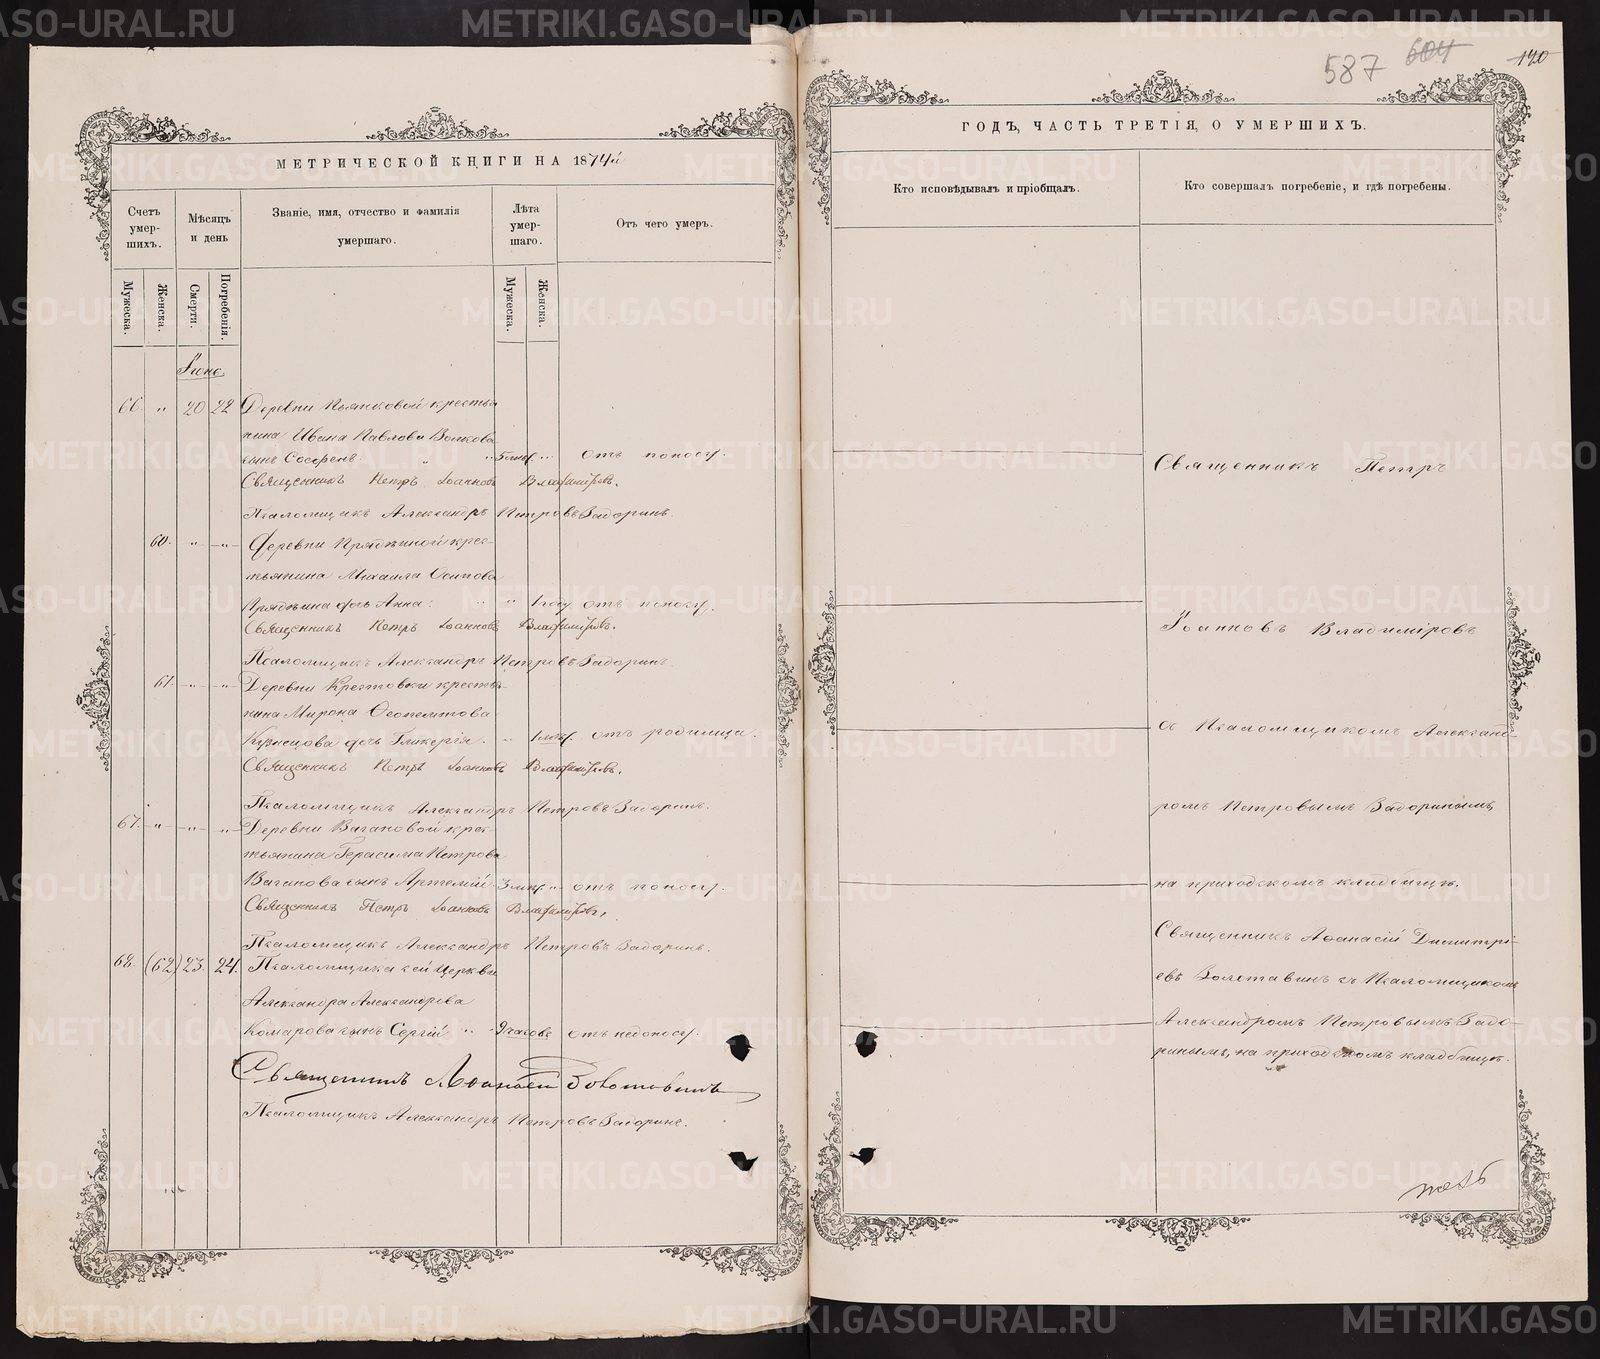 МЕТРИЧЕСКОЙ КНИГИ НА 1874й
Счетъ умер-шихъ.
Мѣсяцъ и день
Званіе, имя, отчество и фамилія умершаго.
Лѣта умер-шаго.
Отъ чего умеръ.
Мужеска.
Женска.
Смерти.
Погребенія.
Мужеска.
Женска.
Іюнь.
66. „ 20 22 Деревни Пьянковой крестья
нина Ивана Павлова Волкова
сынъ „ „ 5 мѣс. „ отъ поносу.
Священникъ Петръ Іоанновъ Владиміровъ.
Псаломщикъ Александръ Петровъ Задоринъ.
60. „ „ Деревни Прядѣиной крес-
тьянина Михаила Осипова
Прядѣина дочь Анна. „ „ 1 году отъ поносу.
Священникъ Петръ Іоанновъ Владиміровъ.
Псаломщикъ Александръ Петровъ Задоринъ.
61. „ „ Деревни Крестовки крестья
нина Мирона
Кузнецова дочь Гликерія. „ 1 мѣс. отъ родимца.
Священникъ Петръ Іоанновъ Владиміровъ.
Псаломщикъ Александръ Петровъ Задоринъ.
67. „ „ „ Деревни Вагановой крес-
тьянина Герасима Петрова
Ваганова сынъ Артемій 3 мѣс. „ отъ поносу.
Священникъ Петръ Іоанновъ Владиміровъ.
Псаломщикъ Александръ Петровъ Задоринъ.
68. (62) 23. 24. Псаломщика сей церкви
Александра Александрова
Комарова сынъ Сергій „ 9 часовъ отъ недоносу.
Священникъ Аѳанасій Золотавинъ
Псаломщикъ Александръ Петровъ Задоринъ.
587 604 120
ГОДЪ, ЧАСТЬ ТРЕТІЯ, О УМЕРШИХЪ.
Кто исповѣдывалъ и пріобщалъ.
Кто совершалъ погребеніе, и гдѣ погребены.
Священникъ Петръ
Іоанновъ Владиміровъ
съ Псаломщикомъ Александ-
ромъ Петровымъ Задоринымъ,
на приходскомъ кладбищѣ.
Священникъ Аѳанасій Димитрі-
евъ Золотавинъ съ Псаломщикомъ
Александромъ Петровымъ Задо-
ринымъ, на приходскомъ кладбищѣ.
METRIKI.GASO-URAL.RU